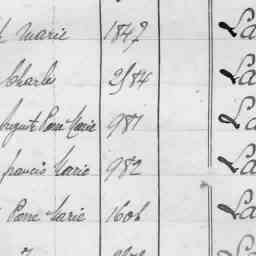 Marie 1847 La
Charles 2584 La
Pierre Marie 981 La
Francis Marie 982 La
Pierre Marie 1606 La
La